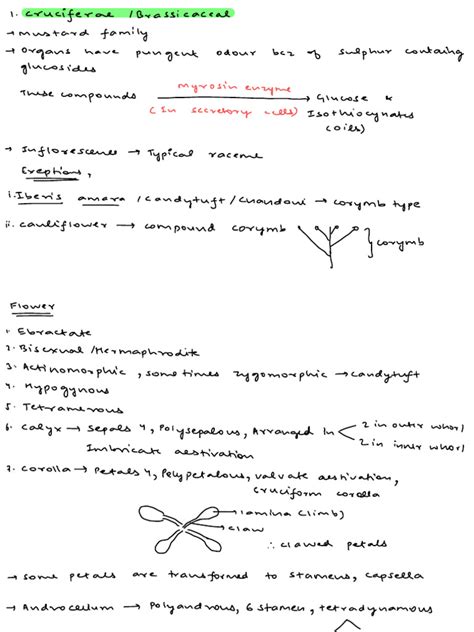 1. Cruciferae / Brassicaceal
→ mustard family
→ Organs have pungent odour bcz of sulphur containg
glucosides
These compounds myrosin enzyme → Glucose &
(In secretory cells) Isothiocynates
(oils)
→ Inflorescence → Typical raceme
Exeptions,
i. Iberis amara / Candytuft / Chandani → corymb type
ii. cauliflower → compound corymb
corymb
Flower
1. Ebractate
2. Bisexual / Hermaphrodite
3. Actinomorphic, sometimes zygomorphic → candytuft
4. Hypogynous
5. Tetramerous
6. Calyx → sepals 4, Polysepalous, Arranged In
2 in outer whorl
2 in inner whorl
Imbricate aestivation
7. Corolla → Petals 4, Polypetalous, valvate aestivation,
cruciform corolla
lamina (limb)
claw
∴ clawed petals
→ some petals are transformed to stamens, capsella
→ Androecium → Polyandrous, 6 stamen, tetradynamous